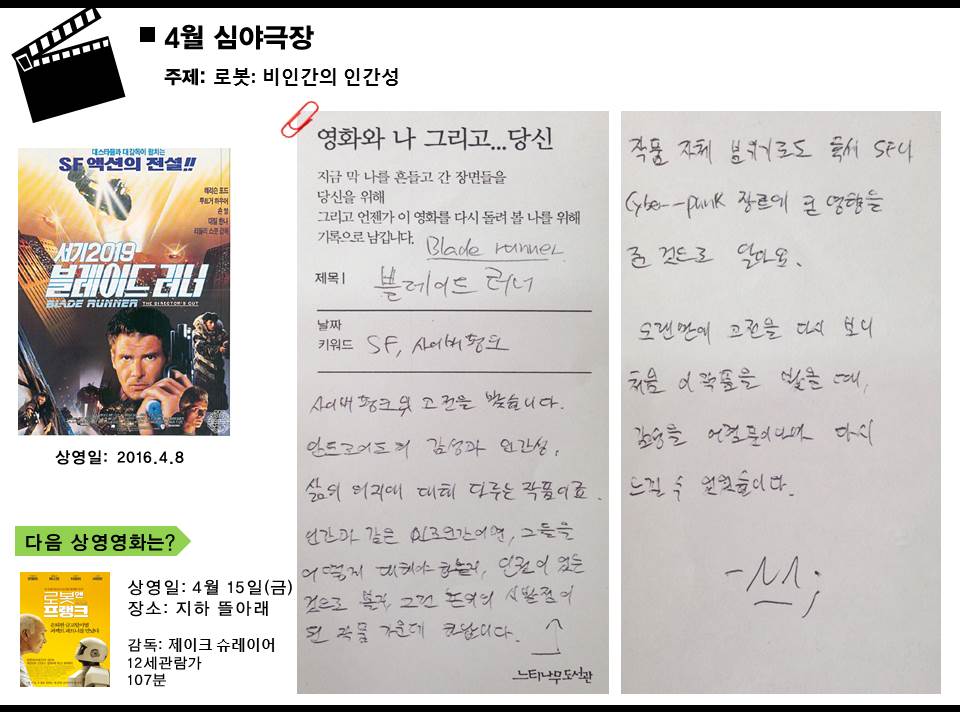 ■ 4월 심야극장
주제: 로봇: 비인간의 인간성
대스타들과 대감독이 펼치는
SF 액션의 전설!!
해리슨 포드
룻거 하우어
숀 영
대릴 한나
리들리 스콧 감독
서기2019
블레이드 러너
BLADE RUNNER THE DIRECTOR'S CUT
상영일: 2016.4.8
다음 상영영화는?
로봇앤
프랭크
상영일: 4월 15일(금)
장소: 지하 뜰아래
감독: 제이크 슈레이어
12세관람가
107분
영화와 나 그리고...당신
지금 막 나를 흔들고 간 장면들을
당신을 위해
그리고 언젠가 이 영화를 다시 돌려 볼 나를 위해
기록으로 남깁니다.
Blade runner
제목 | 블레이드 러너
날짜
키워드 SF, 사이버펑크
사이버펑크의 고전을 봤습니다.
안드로이드의 감성과 인간성,
삶의 의지에 대해 다루는 작품이죠.
인간과 같은 인조인간이면, 그들을
어떻게 대해야 하는지, 인권이 없는
것으로 볼지, 그런 논의의 시발점이
된 작품 가운데 하납니다.
느티나무도서관
작품 자체 분위기로도 훗세 SF나
Cyber-punk 장르에 큰 영향을
준 것으로 알아요.
오랜만에 고전을 다시 보니
처음 이 작품을 봤을 때,
감정을 어렴풋이나마 다시
느낄 수 있었습니다.